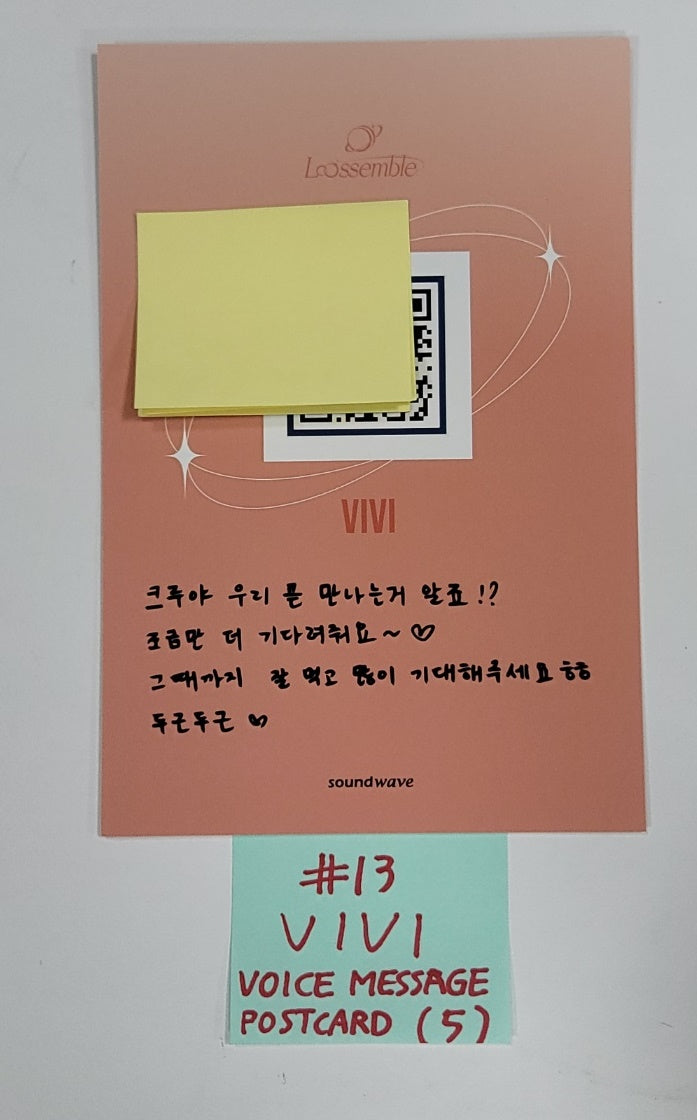 Loossemble
VIVI
크루야 우리 곧 만나는거 알죠!?
조금만 더 기다려줘요~♡
그때까지 잘 먹고 많이 기대해주세요 ㅎㅎ
두근두근 ♡
soundwave
#13
VIVI
VOICE MESSAGE
POSTCARD (5)